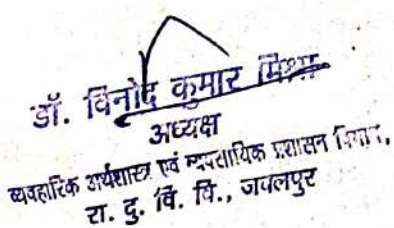 डॉ. विनोद कुमार मिश्रा
अध्यक्ष
व्यवहारिक अर्थशास्त्र एवं व्यवसायिक प्रशासन विभाग,
रा. दु. वि. वि., जबलपुर